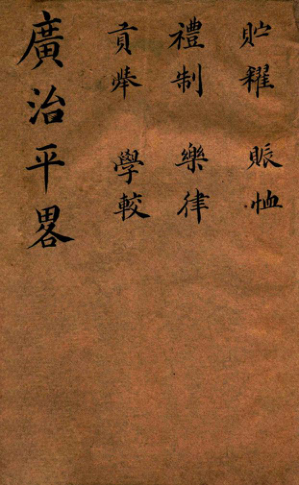 貯糴 賑恤
禮制 樂律
貢舉 學較
廣治平畧